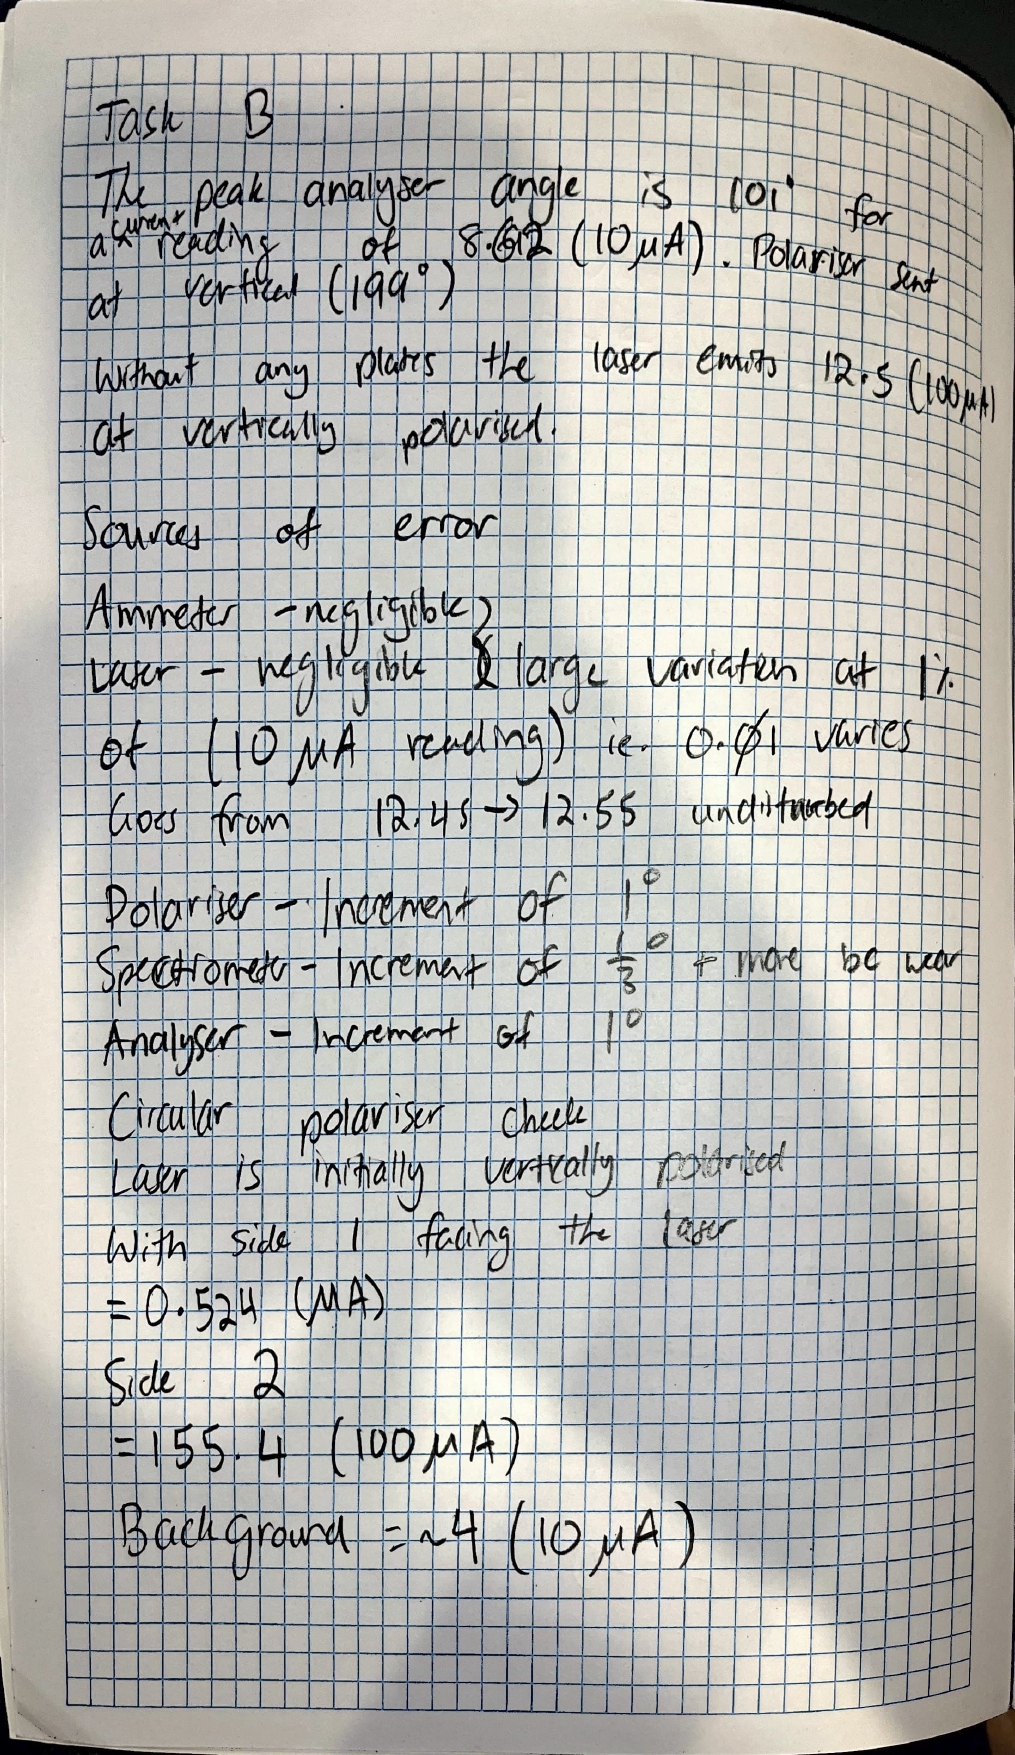 Task B
The peak analyser angle is 101° for
a current reading of 8.612 (10 μA). Polariser sent
at vertical (199°)
Without any plates the laser emits 12.5 (100 μA)
at vertically polarised.
Sources of error
Ammeter - negligible
Laser - negligible large variation at 1%
of (10 μA reading) ie. 0.01 varies
Goes from 12.45 → 12.55 undisturbed
Polariser - Increment of 1°
Spectrometer - Increment of 1/3° + more bc wear
Analyser - Increment of 1°
Circular polariser check
Laser is initially vertically polarised
With side 1 facing the laser
= 0.524 (μA)
Side 2
= 155.4 (100 μA)
Background = ~4 (10 μA)